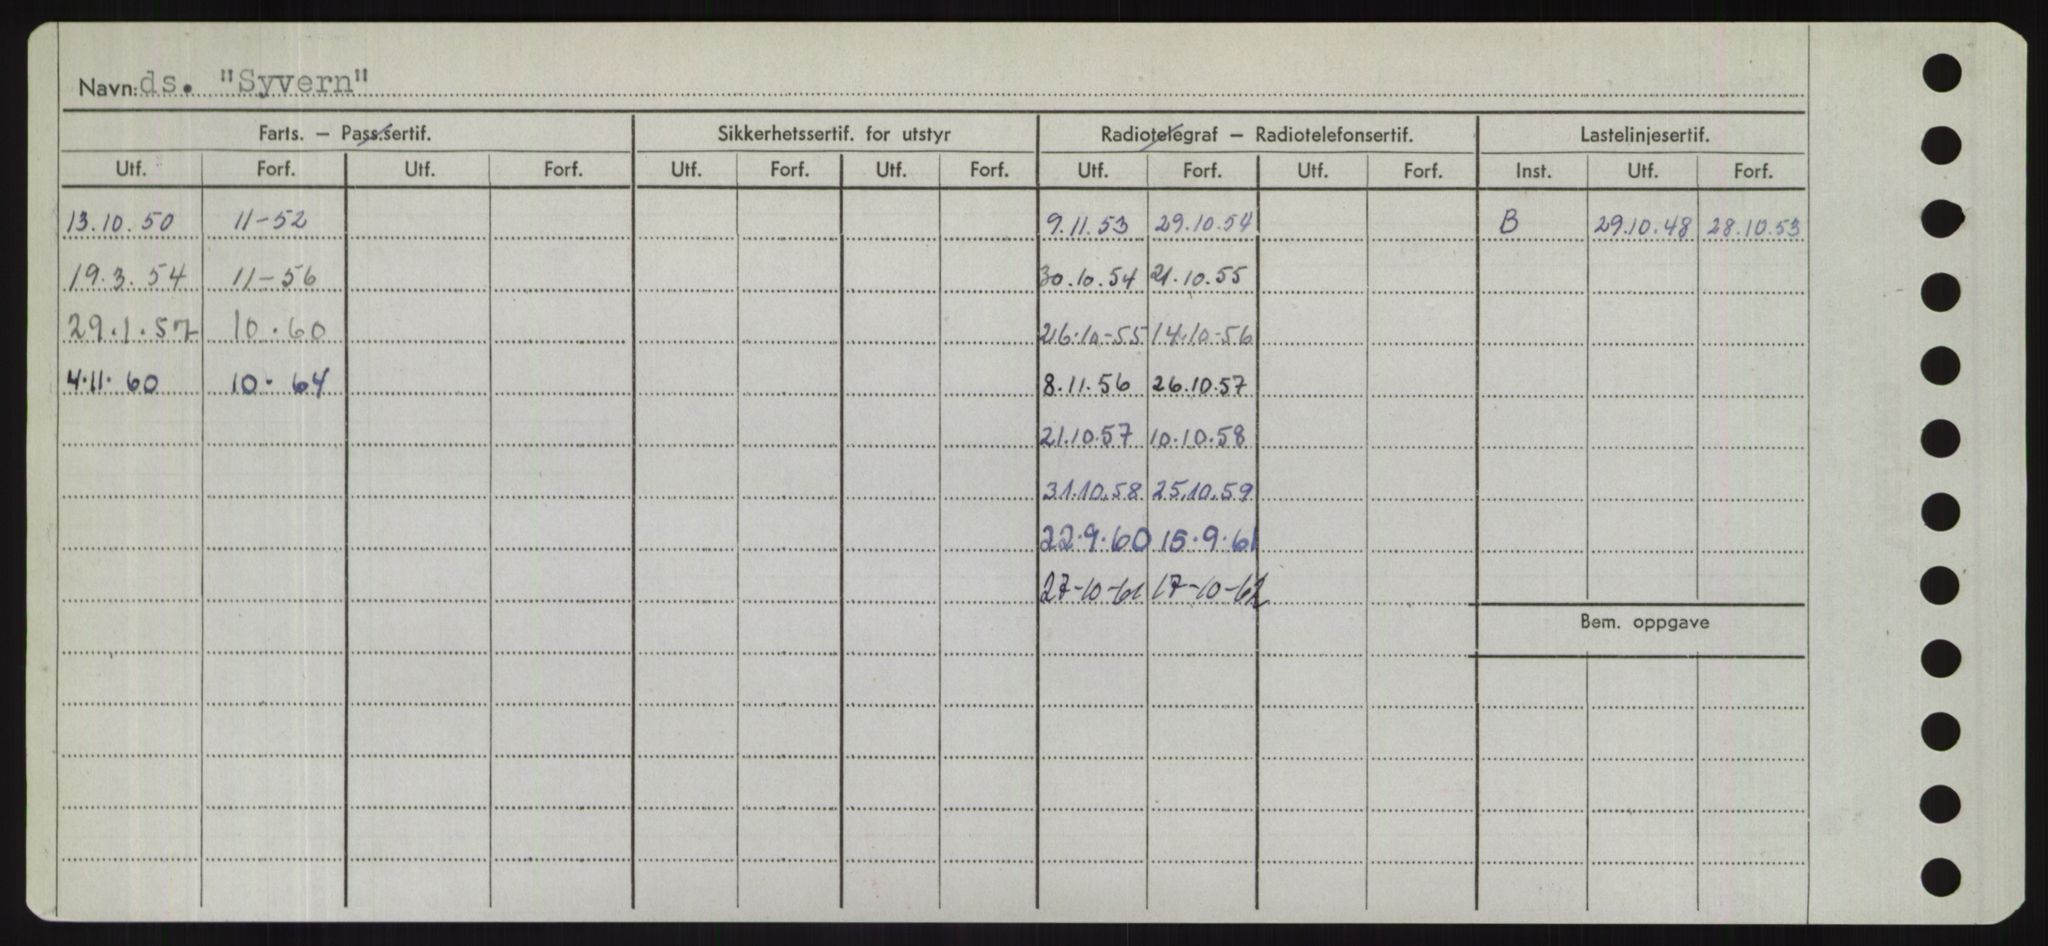 Navn: ds. "Syvern"
Farts. – Pass.sertif. Sikkerhetssertif. for utstyr Radiotelegraf – Radiotelefonsertif. Lastelinjesertif.
Utf. Forf. Utf. Forf. Utf. Forf. Utf. Forf. Utf. Forf. Utf. Forf. Inst. Utf. Forf.
13.10.50 11-52 9.11.53 29.10.54 B 29.10.48 28.10.53
19.3.54 11-56 30.10.54 21.10.55
29.1.57 10.60 26.10-55 14.10-56
4.11.60 10.64 8.11.56 26.10.57
21.10.57 10.10.58
31.10.58 25.10.59
22.9.60 15.9.61
27-10-61 17-10-62
Bem. oppgave